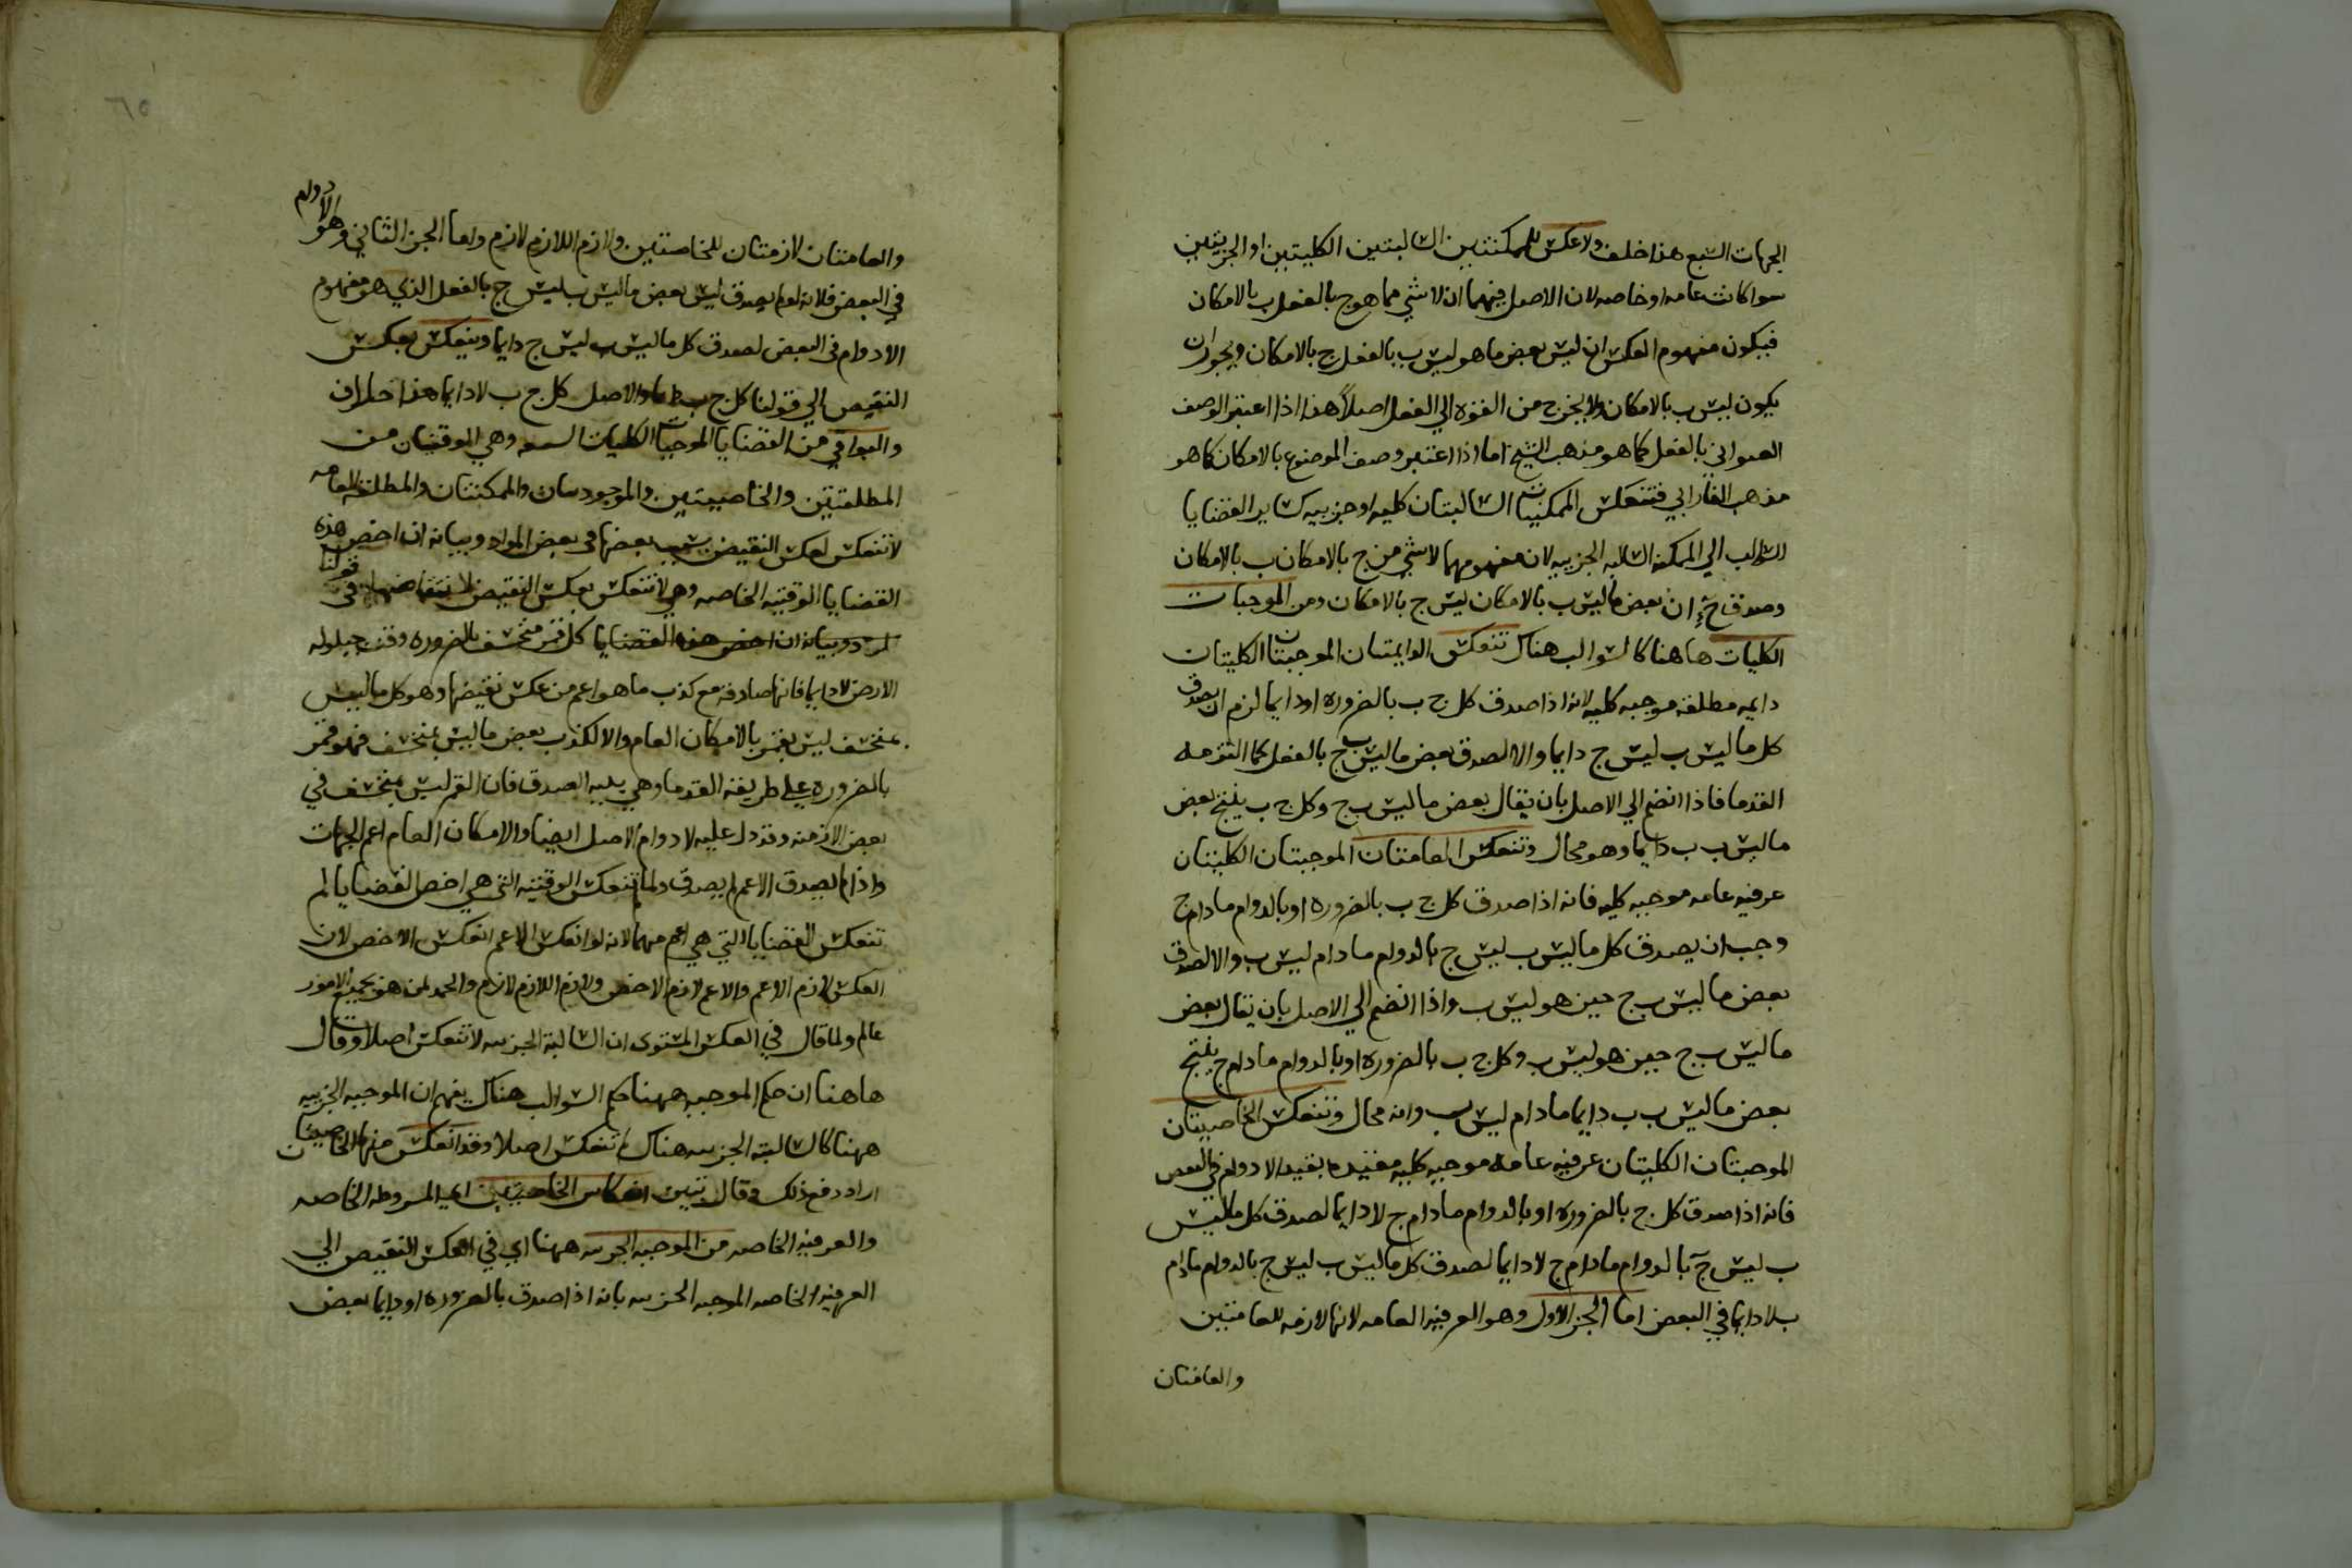 الجهات السبع هذا خلف ولا عكس للممكنتين السالبتين الكليتين او الجزييتين
سوا كانت عامه او خاصه لان الاصل فيهما ان لا شي مما هو ج بالفعل ب بالامكان
فيكون مفهوم العكس ان ليس بعض ما هو ليس ب بالفعل ج بالامكان ويجوز ان
يكون ليس ب بالامكان ولا يخرج من القوه الي الفعل اصلا هذا اذا اعتبر الوصف
العنواني بالفعل كما هو مذهب الشيخ اما اذا اعتبر وصف الموضوع بالامكان كما هو
مذهب الفارابي فتنعكس الممكنتان السالبتان كليه او جزييه كساير القضايا
السوالب الي الممكنه السالبه الجزييه لان مفهومهما لا شي من ج بالامكان ب بالامكان
وصدق ح ان بعض ما ليس ب بالامكان ليس ج بالامكان ومن الموجبات
الكليات هاهنا كالسوالب هناك تنعكس الدايمتان الموجبتان الكليتان
دايمه مطلقه موجبه كليه لانه اذا صدق كل ج ب بالضروره او دايما لزم ان يصدق
كل ما ليس ب ليس ج دايما والا لصدق بعض ما ليس ب ج بالفعل كما التزمه
القدما فاذا انضم الي الاصل بان يقال بعض ما ليس ب ج وكل ج ب ينتج بعض
ما ليس ب ب دايما وهو محال وتنعكس العامتان الموجبتان الكليتان
عرفيه عامه موجبه كليه فانه اذا صدق كل ج ب بالضروره او بالدوام ما دام ج
وجب ان يصدق كل ما ليس ب ليس ج بالدوام ما دام ليس ب والا لصدق
بعض ما ليس ب ج حين هو ليس ب واذا انضم الي الاصل بان يقال بعض
ما ليس ب ج حين هو ليس ب وكل ج ب بالضروره او بالدوام ما دام ج ينتج
بعض ما ليس ب ب دايما ما دام ليس ب وانه محال وتنعكس الخاصيتان
الموجبتان الكليتان عرفيه عامه موجبه كليه مقيده بقيد الادوام في البعض
فانه اذا صدق كل ج بالضروره او بالدوام ما دام ج لا دايما لصدق كل ما ليس
ب ليس ج بالدوام ما دام ج لا دايما لصدق كل ما ليس ب ليس ج بالدوام ما دام
ب لا دايما في البعض اما الجز الاول وهو العرفيه العامه لانها لازمه للعامتين
والعامتان
٦٥
والعامتان لازمتان للخاصتين ولازم اللازم لازم واما الجز الثاني وهو الادوام
في البعض فلانه لو لم يصدق ليس بعض ما ليس ب ليس ج بالفعل الذي هو مفهوم
الادوام في البعض لصدق كل ما ليس ب ليس ج دايما وينعكس بعكس
النقيض الي قولنا كل ج ب دايما والاصل كل ج ب لا دايما هذا خلف
والبواقي من القضايا الموجبات الكليات السبعه وهي الوقتيتان من
المطلقتين والخاصيتين والموجودتان والممكنتان والمطلقه العامه
لا تنعكس لعكس النقيض بعضها في بعض المواد وبيانه ان اخص هذه
القضايا الوقتيه الخاصه وهي لا تنعكس بعكس النقيض في قولنا
لمرد وبيانه ان اخص هذه القضايا كل قمر منخسف بالضروره وقت حيلوله
الارض لا دايما فانها صادقه مع كذب ما هو اعم من عكس نقيضها وهو كل ما ليس
بمنخسف ليس بقمر بالامكان العام والا لكذب بعض ما ليس بمنخسف فهو قمر
بالضروره علي طريقه القدما وهي بديهيه الصدق فان القمر ليس بمنخسف في
بعض الازمنه وقد دل عليه لا دوام الاصل ايضا والامكان العام اعم الجهات
واذا لم يصدق الاعم لم يصدق ولما لم تنعكس الوقتيه التي هي اخص القضايا لم
تنعكس القضايا التي هي اعم منهما لانه لو انعكس الاعم انعكس الاخص لان
العكس لازم الاعم والاعم لازم الاخص ولازم اللازم لازم والحمد لمن هو بجميع الامور
عالم ولما قال في العكس المستوي ان السالبة الجزييه لا تنعكس اصلا وقال
هاهنا ان حكم الموجبه ههنا حكم السوالب هناك يفهم ان الموجبه الجزييه
ههنا كالسالبة الجزييه هناك لا تنعكس اصلا وقد انعكس منها الخاصيتان
اراد دفع ذلك وقال تبين انعكاس الخاصيتين اي المشروطه الخاصه
والعرفيه الخاصه من الموجبه الجزييه ههنا اي في العكس النقيض الي
العرفيه الخاصه الموجبه الجزييه بانه اذا صدق بالضروره او دايما بعض